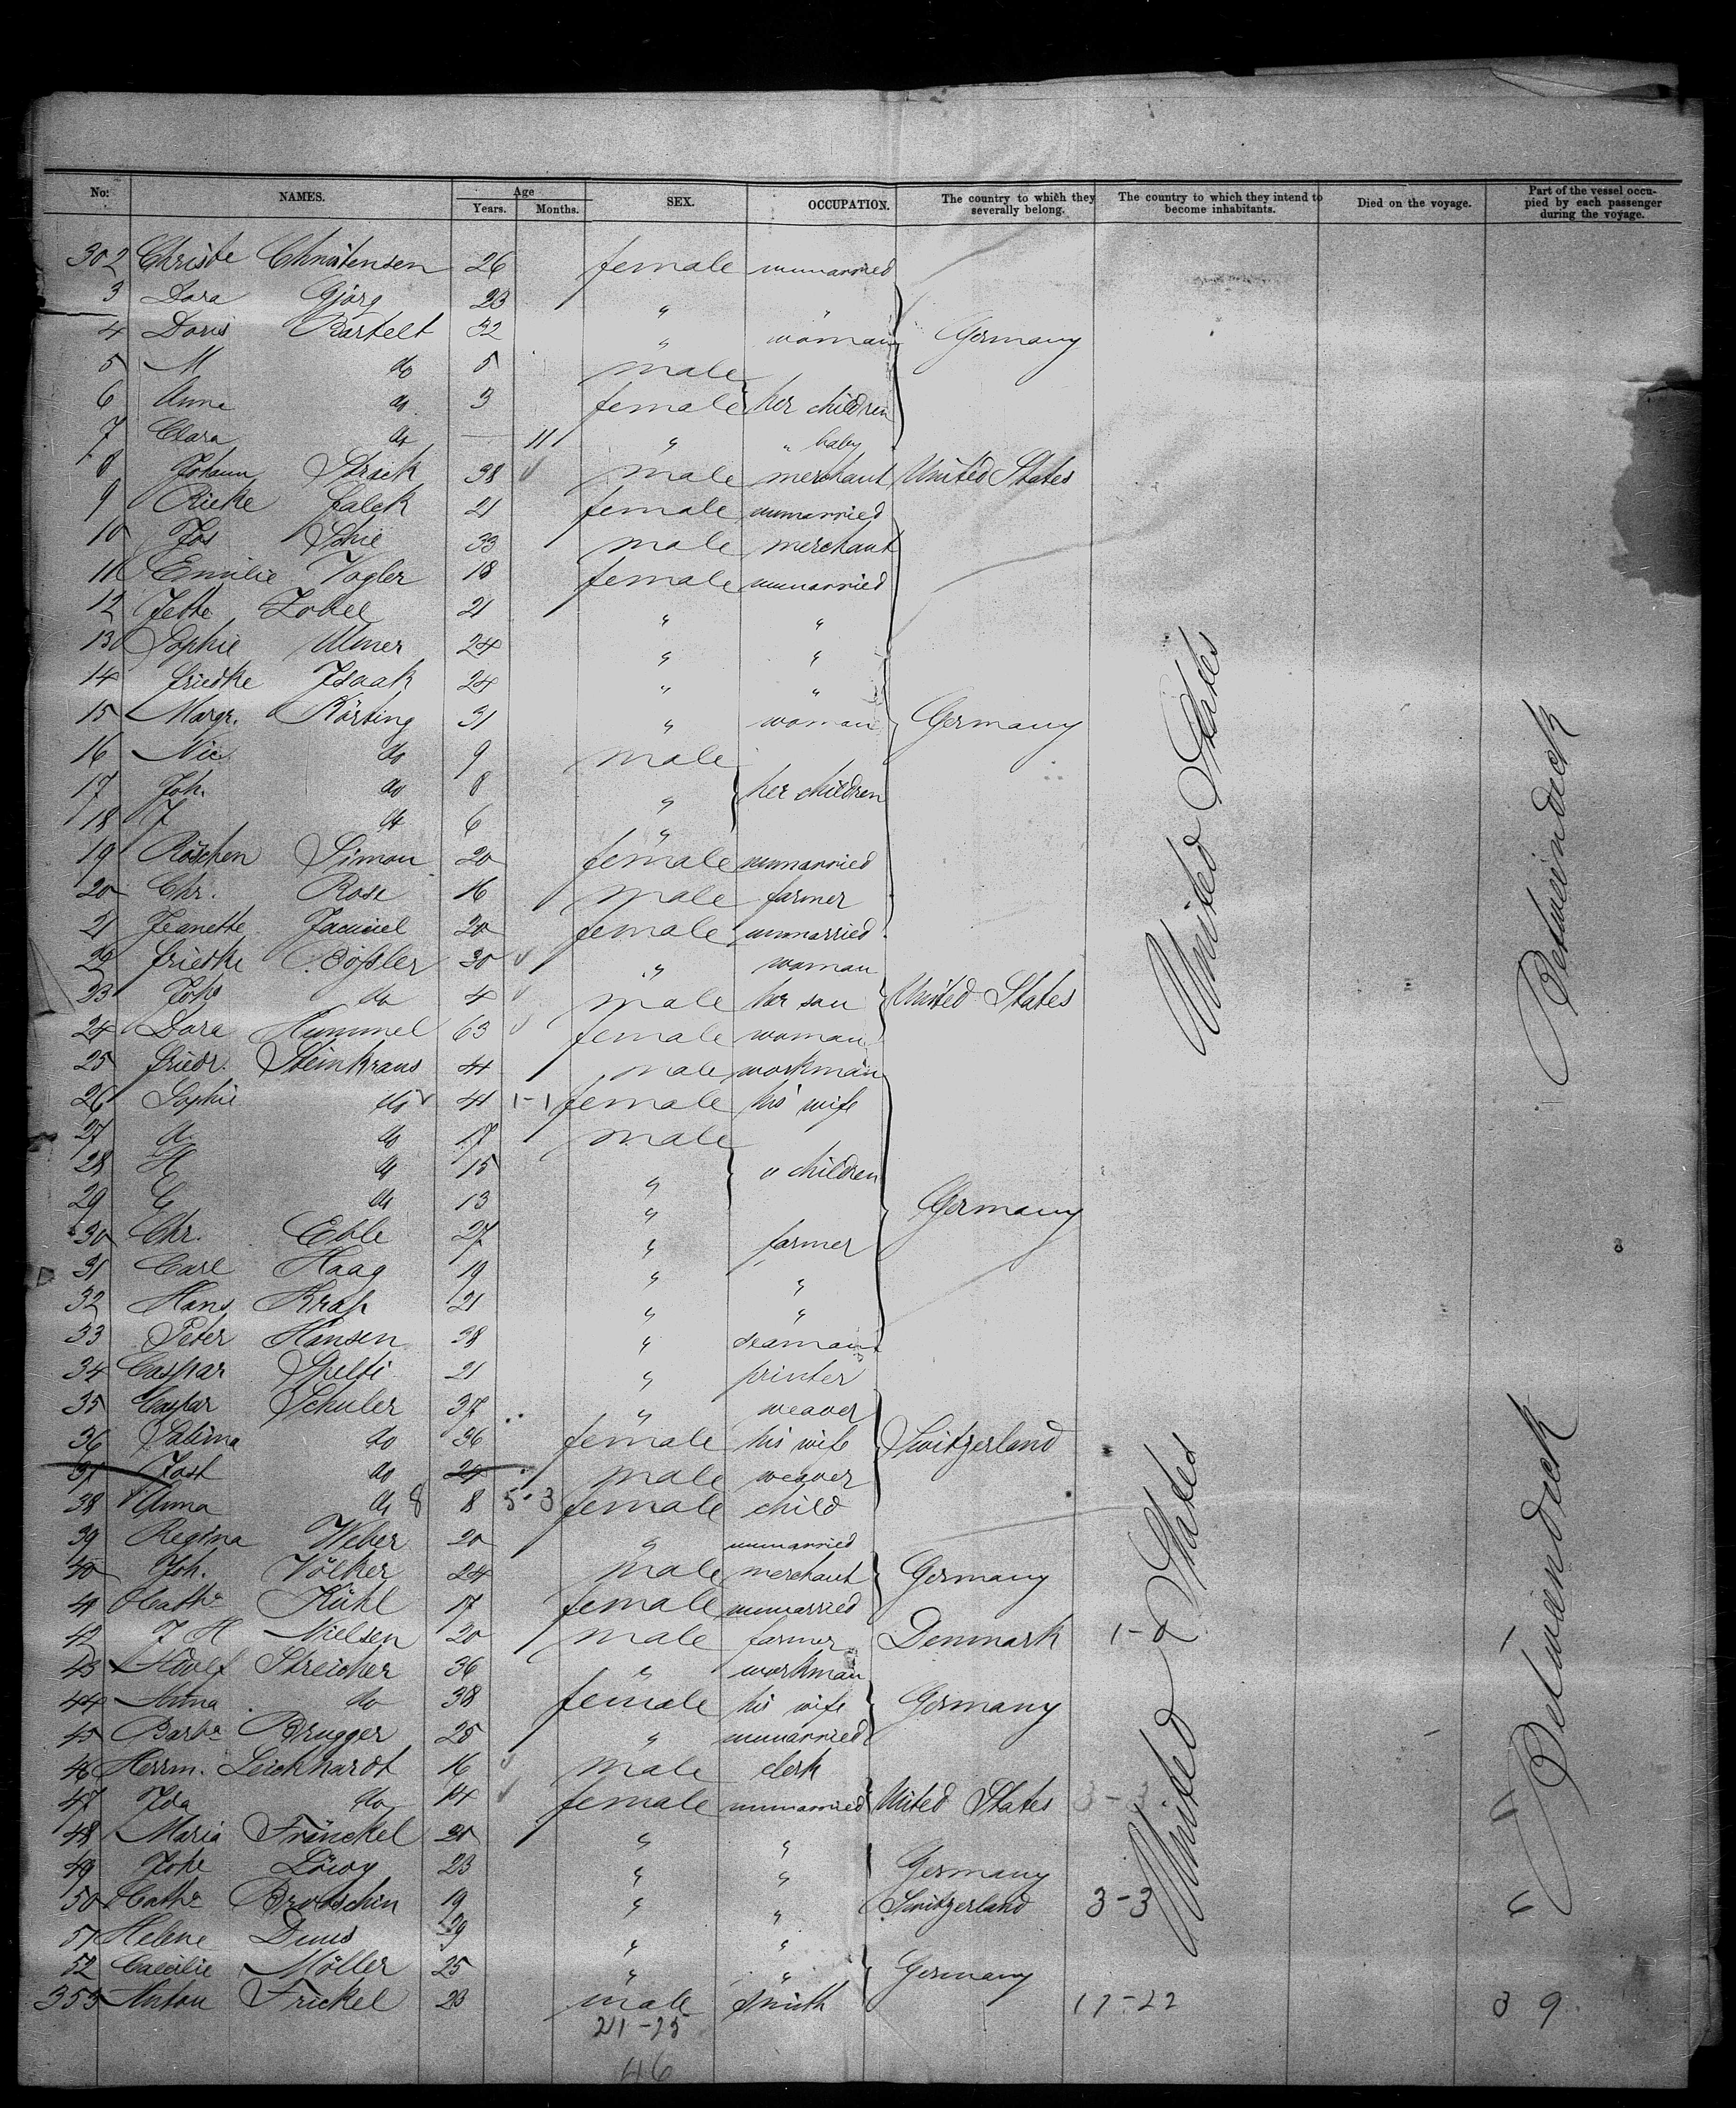 No: NAMES. Age Years. Months. SEX. OCCUPATION. The country to which they severally belong. The country to which they intend to become inhabitants. Died on the voyage. Part of the vessel occupied by each passenger during the voyage.
302 Christe Christensen 26 female unmarried
3 Dora Gjörg 23 " "
4 Doris Bartelt 32 " woman Germany
5 M do 5 male
6 Anna do 3 female her children
7 Clara do — 11 " " baby
8 Johann Strack 38 male merchant United States
9 Rieke Falck 21 female unmarried
10 Jos Schie 33 male merchant
11 Emilie Vogler 18 female unmarried
12 Jette Zobel 21 " "
13 Sophie Ulmer 24 " "
14 Friedke Isaak 24 " "
15 Margr. Körting 31 " woman Germany
16 Nic do 9 male
17 Joh. do 8 " her children
18 J do 6 "
19 Röschen Simon 20 female unmarried
20 Chr. Rose 16 male farmer
21 Jeanette 20 female unmarried
22 Friedke Bößler 30 " woman
23 Joh do 4 male her son United States
24 Dora Hummel 63 female woman
25 Friedr. Steinkraus 41 male workman
26 Sophie do 41 1-1 female his wife
27 A do 17 male
28 H do 15 " " children
29 G do 13 " Germany
30 Chr. Eble 27 " farmer
31 Carl Haag 19 " "
32 Hans Kraft 21 " "
33 Peter Hansen 38 " seaman
34 Caspar Spelti 21 " printer
35 Caspar Schuler 37 " weaver
36 Salima do 36 female his wife Switzerland
37 Jost do 24 male weaver
38 Anna do 8 8 5-3 female child
39 Regina Weber 20 " unmarried
40 Joh. Völker 24 male merchant Germany
41 Catha Kühl 17 female unmarried
42 J H Nielsen 20 male farmer Denmark 1-
43 Adolf Streicher 36 " workman
44 Anna do 38 female his wife Germany
45 Barba Brugger 25 " unmarried
46 Herrm. Leichhardt 16 male clerk
47 Ida do 14 female unmarried United States 3-3
48 Maria Fränckel 20 " "
49 Joke Löwy 23 " " Germany
50 Catha Brodtschin 19 " " Switzerland 3-3 6
51 Helene Duus 29 " "
52 Caecilie Möller 25 " " Germany
353 Anton Frickel 23 male smith 17-22 39
21-25
46
United States
United States
Betweindeck
Betweendeck